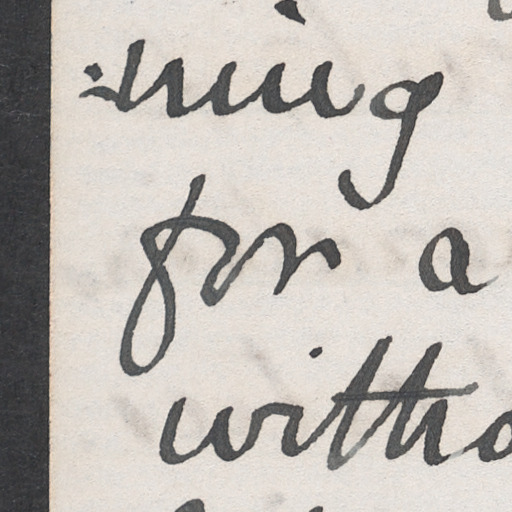 :ning
for a
witho